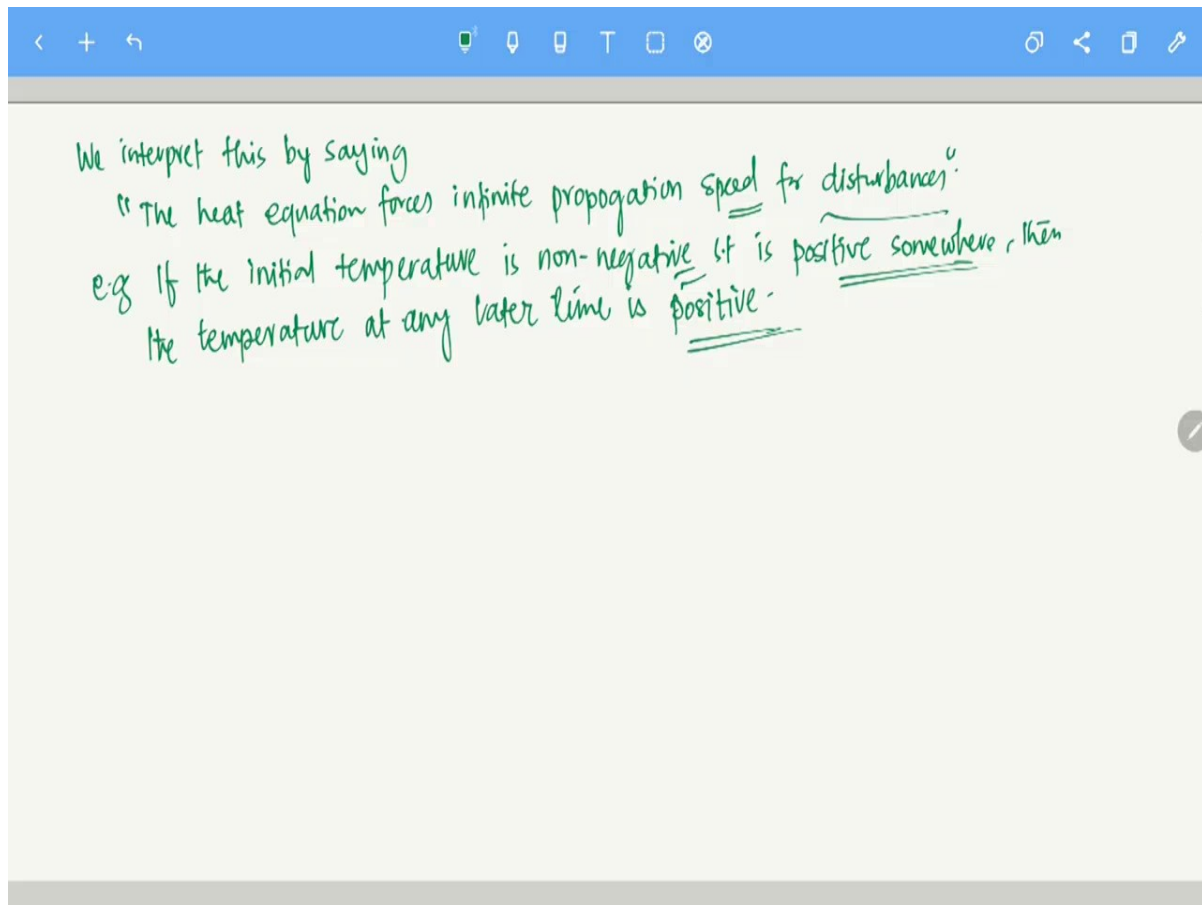 We interpret this by saying
"The heat equation forces infinite propogation speed for disturbances".
e.g If the initial temperature is non-negative s.t is positive somewhere, then
the temperature at any later time is positive.